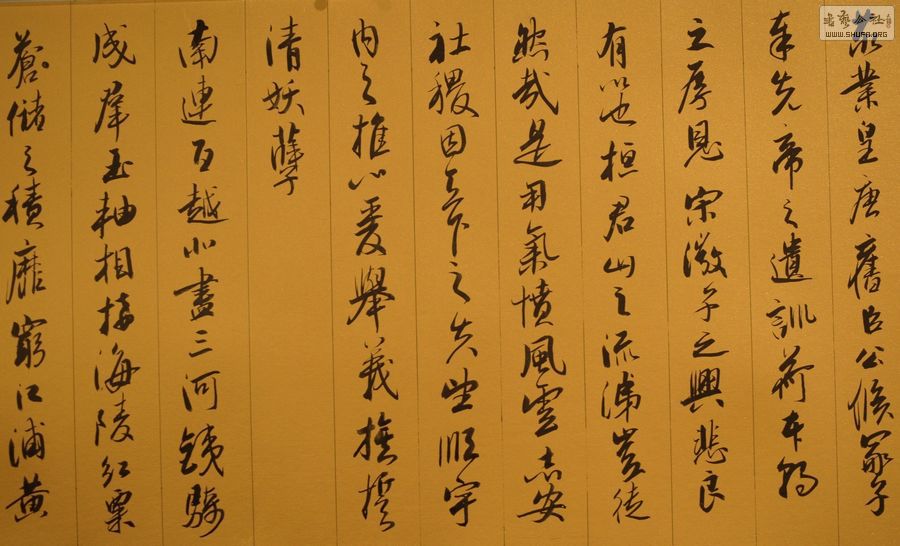 業皇唐舊臣公侯冢子
奉先帝之遺訓荷本朝
之厚恩宋微子之興悲良
有以也桓君山之流涕豈徒
然哉是用氣憤風雲志安
社稷因天下之失望順宇
内之推心爰舉義旗誓
清妖孽
南連百越北盡三河鐵騎
成羣玉軸相接海陵紅粟
蒼儲之積靡窮江浦黄
WWW.SHUFA.ORG